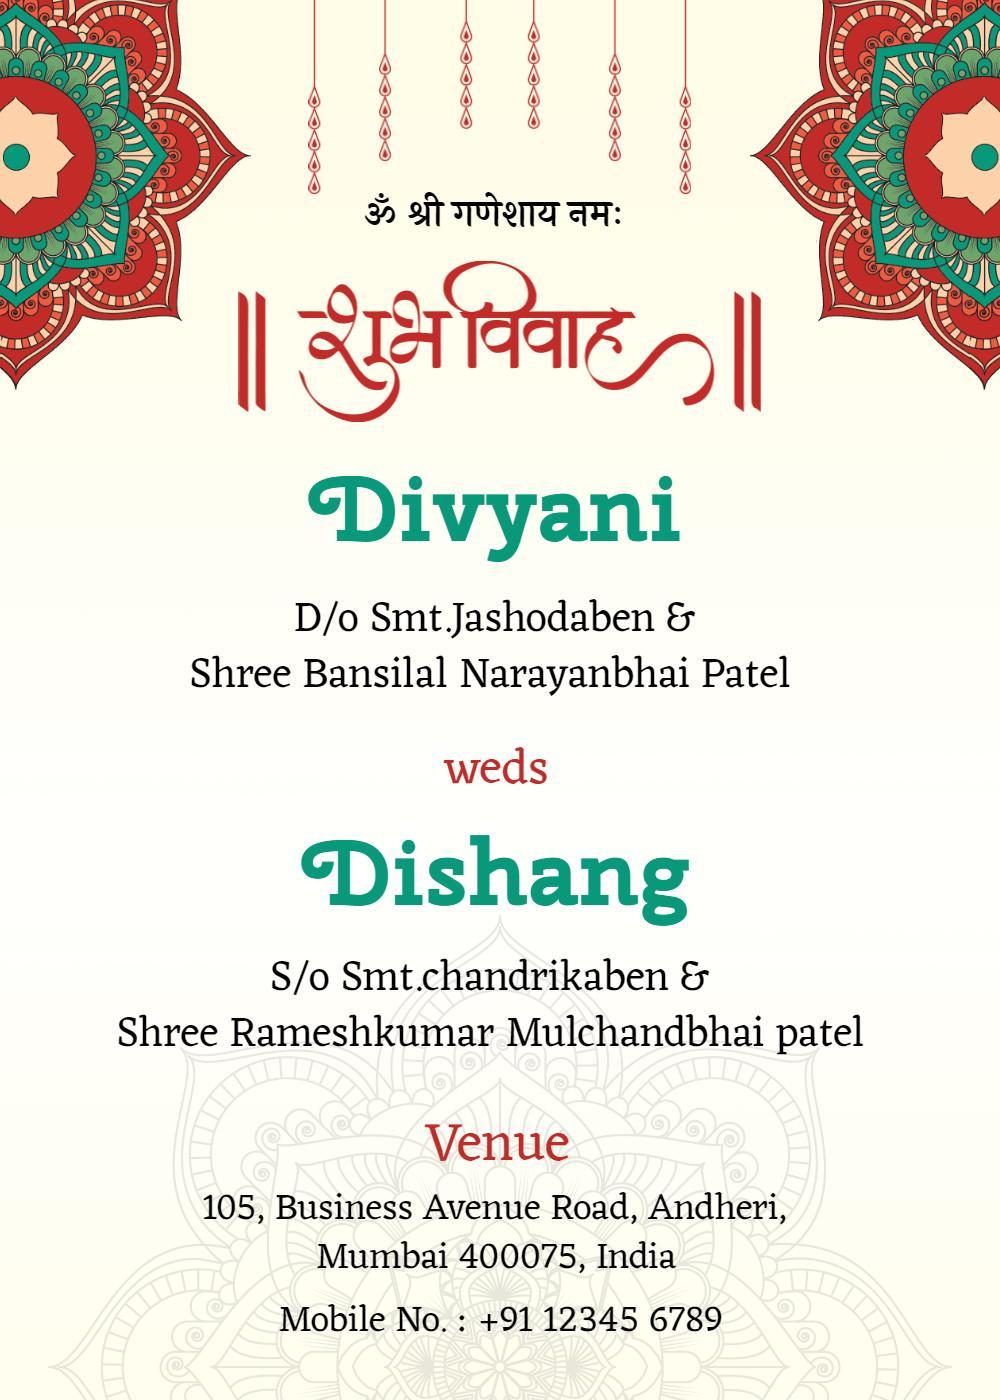 ॐ श्री गणेशाय नमः
॥ शुभ विवाह ॥
Divyani
D/o Smt.Jashodaben &
Shree Bansilal Narayanbhai Patel
weds
Dishang
S/o Smt.chandrikaben &
Shree Rameshkumar Mulchandbhai patel
Venue
105, Business Avenue Road, Andheri,
Mumbai 400075, India
Mobile No. : +91 12345 6789